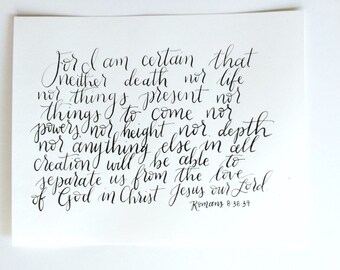 For I am certain that
neither death nor life
nor things present nor
things to come nor
powers, nor height nor depth
nor anything else in all
creation will be able to
separate us from the love
of God in Christ Jesus our Lord
Romans 8:38-39